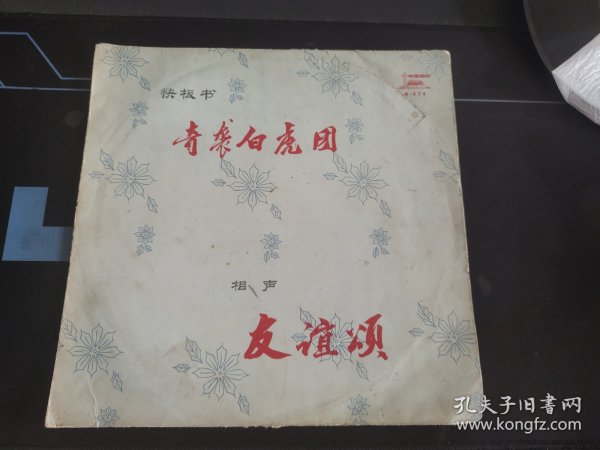 快板书
中国唱片
奇袭白虎团
相声
友谊颂
孔夫子旧书网
www.kongfz.com